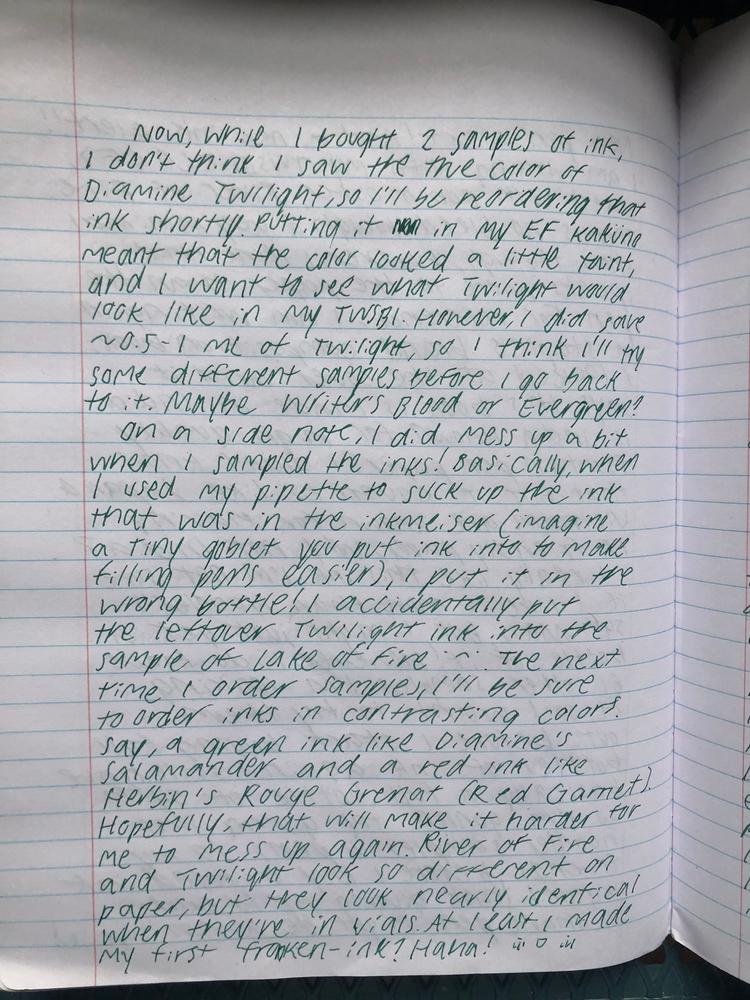 Now, while I bought 2 samples of ink,
I don't think I saw the true color of
Diamine Twilight, so I'll be reordering that
ink shortly. Putting it in my EF Kaküno
meant that the color looked a little faint,
and I want to see what Twilight would
look like in my TWSBI. However, I did save
~0.5-1 mL of Twilight, so I think I'll try
some different samples before I go back
to it. Maybe Writer's Blood or Evergreen?
On a side note, I did mess up a bit
when I sampled the inks! Basically, when
I used my pipette to suck up the ink
that was in the inkmeiser (imagine
a tiny goblet you put ink into to make
filling pens easier), I put it in the
wrong bottle! I accidentally put
the leftover Twilight ink into the
sample of Lake of Fire :^: The next
time I order samples, I'll be sure
to order inks in contrasting colors.
Say, a green ink like Diamine's
Salamander and a red ink like
Herbin's Rouge Grenat (Red Garnet).
Hopefully, that will make it harder for
me to mess up again. River of Fire
and Twilight look so different on
paper, but they look nearly identical
when they're in vials. At least I made
my first franken-ink? Haha!